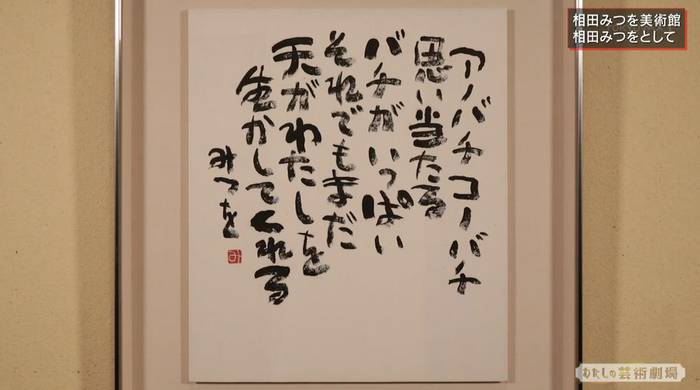 相田みつを美術館
相田みつをとして
アノバチコノバチ
思い当たる
バチがいっぱい
それでもまだ
天がわたしを
生かしてくれる
みつを
わたしの芸術劇場